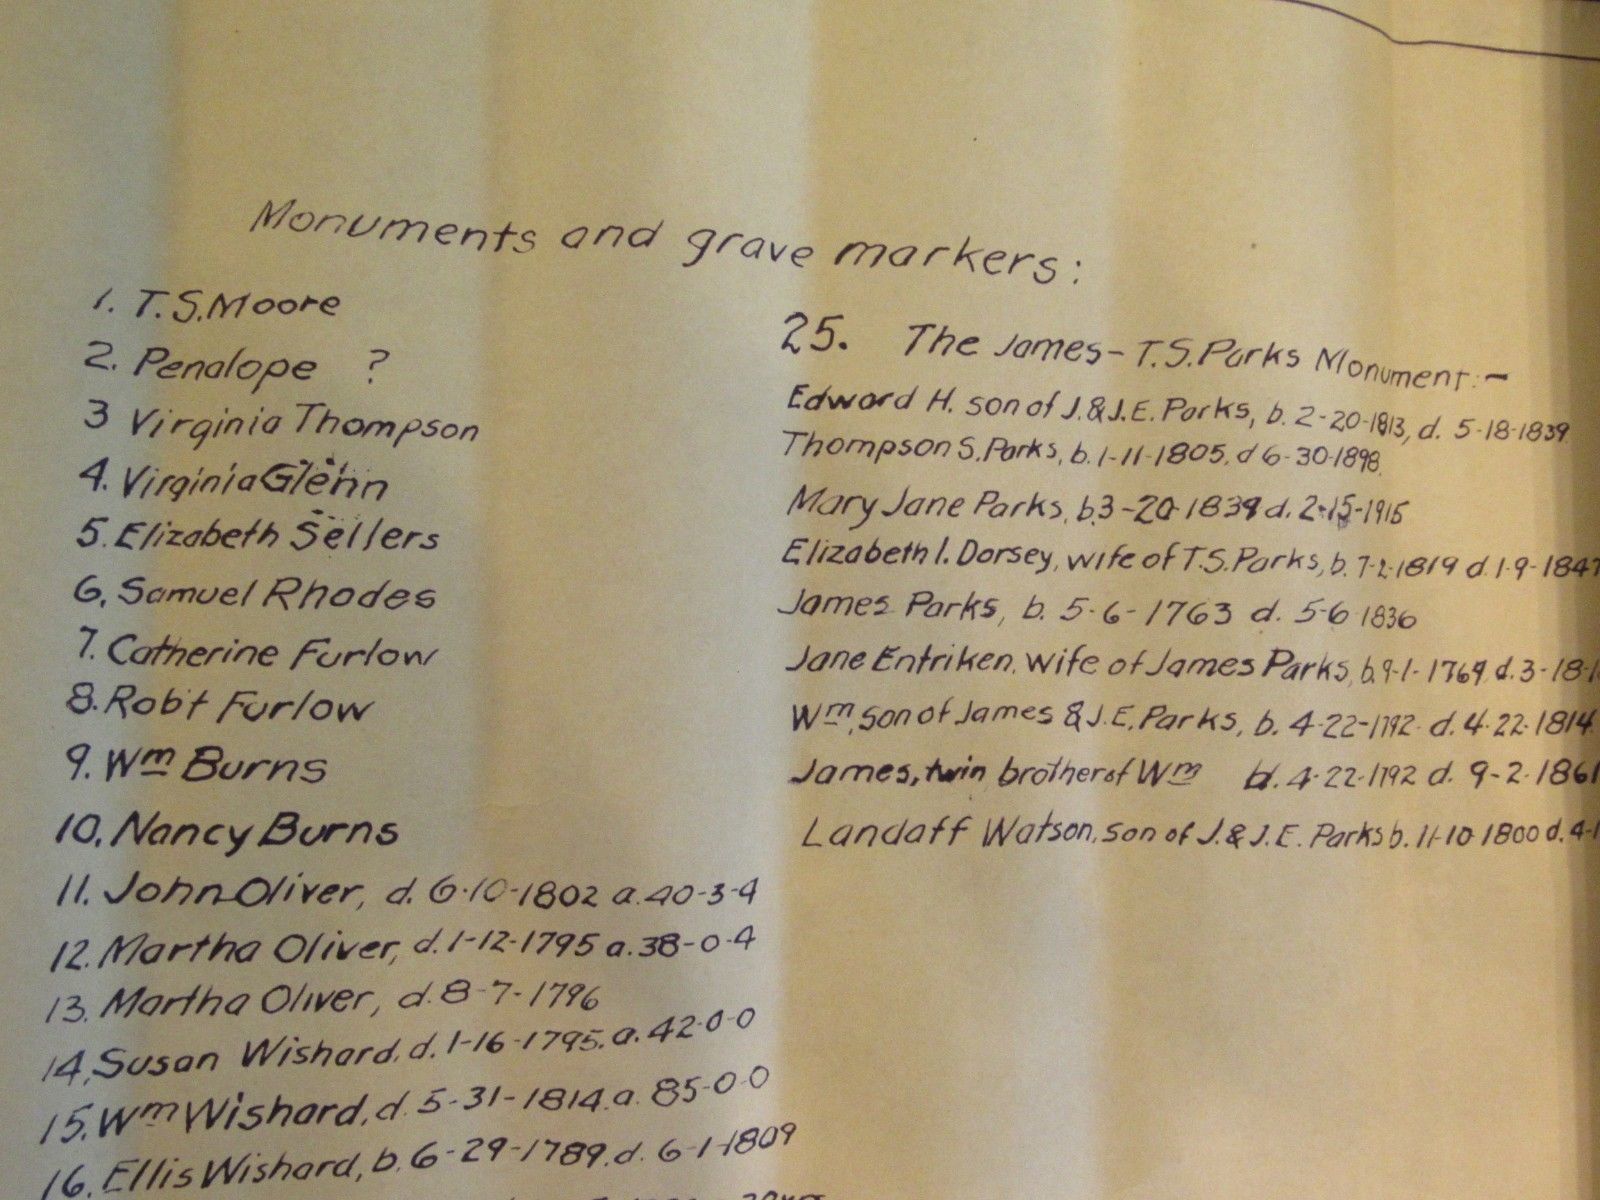 Monuments and grave markers:
1. T.S. Moore
2. Penalope ?
3 Virginia Thompson
4. Virginia Glenn
5. Elizabeth Sellers
6. Samuel Rhodes
7. Catherine Furlow
8. Rob't Furlow
9. Wm Burns
10. Nancy Burns
11. John Oliver, d. 6-10-1802 a. 40-3-4
12. Martha Oliver, d. 1-12-1795 a. 38-0-4
13. Martha Oliver, d. 8-7-1796
14. Susan Wishard, d. 1-16-1795. a. 42-0-0
15. Wm Wishard, d. 5-31-1814. a. 85-0-0
16. Ellis Wishard, b. 6-29-1789. d. 6-1-1809
25. The James - T.S. Parks Monument:-
Edward H. son of J. & J.E. Parks, b. 2-20-1813, d. 5-18-1839
Thompson S. Parks, b. 1-11-1805. d 6-30-1898.
Mary Jane Parks, b. 3-20-1839 d. 2-15-1915
Elizabeth I. Dorsey, wife of T.S. Parks, b. 7-2-1819 d. 1-9-1847
James Parks, b. 5-6-1763 d. 5-6 1836
Jane Entriken, wife of James Parks, b. 9-1-1769, d. 3-18-1
Wm, son of James & J.E. Parks, b. 4-22-1792 d. 4-22-1814
James, twin brother of Wm b. 4-22-1792 d. 9-2-1861
Landaff Watson, son of J. & J.E. Parks b. 11-10-1800 d. 4-1